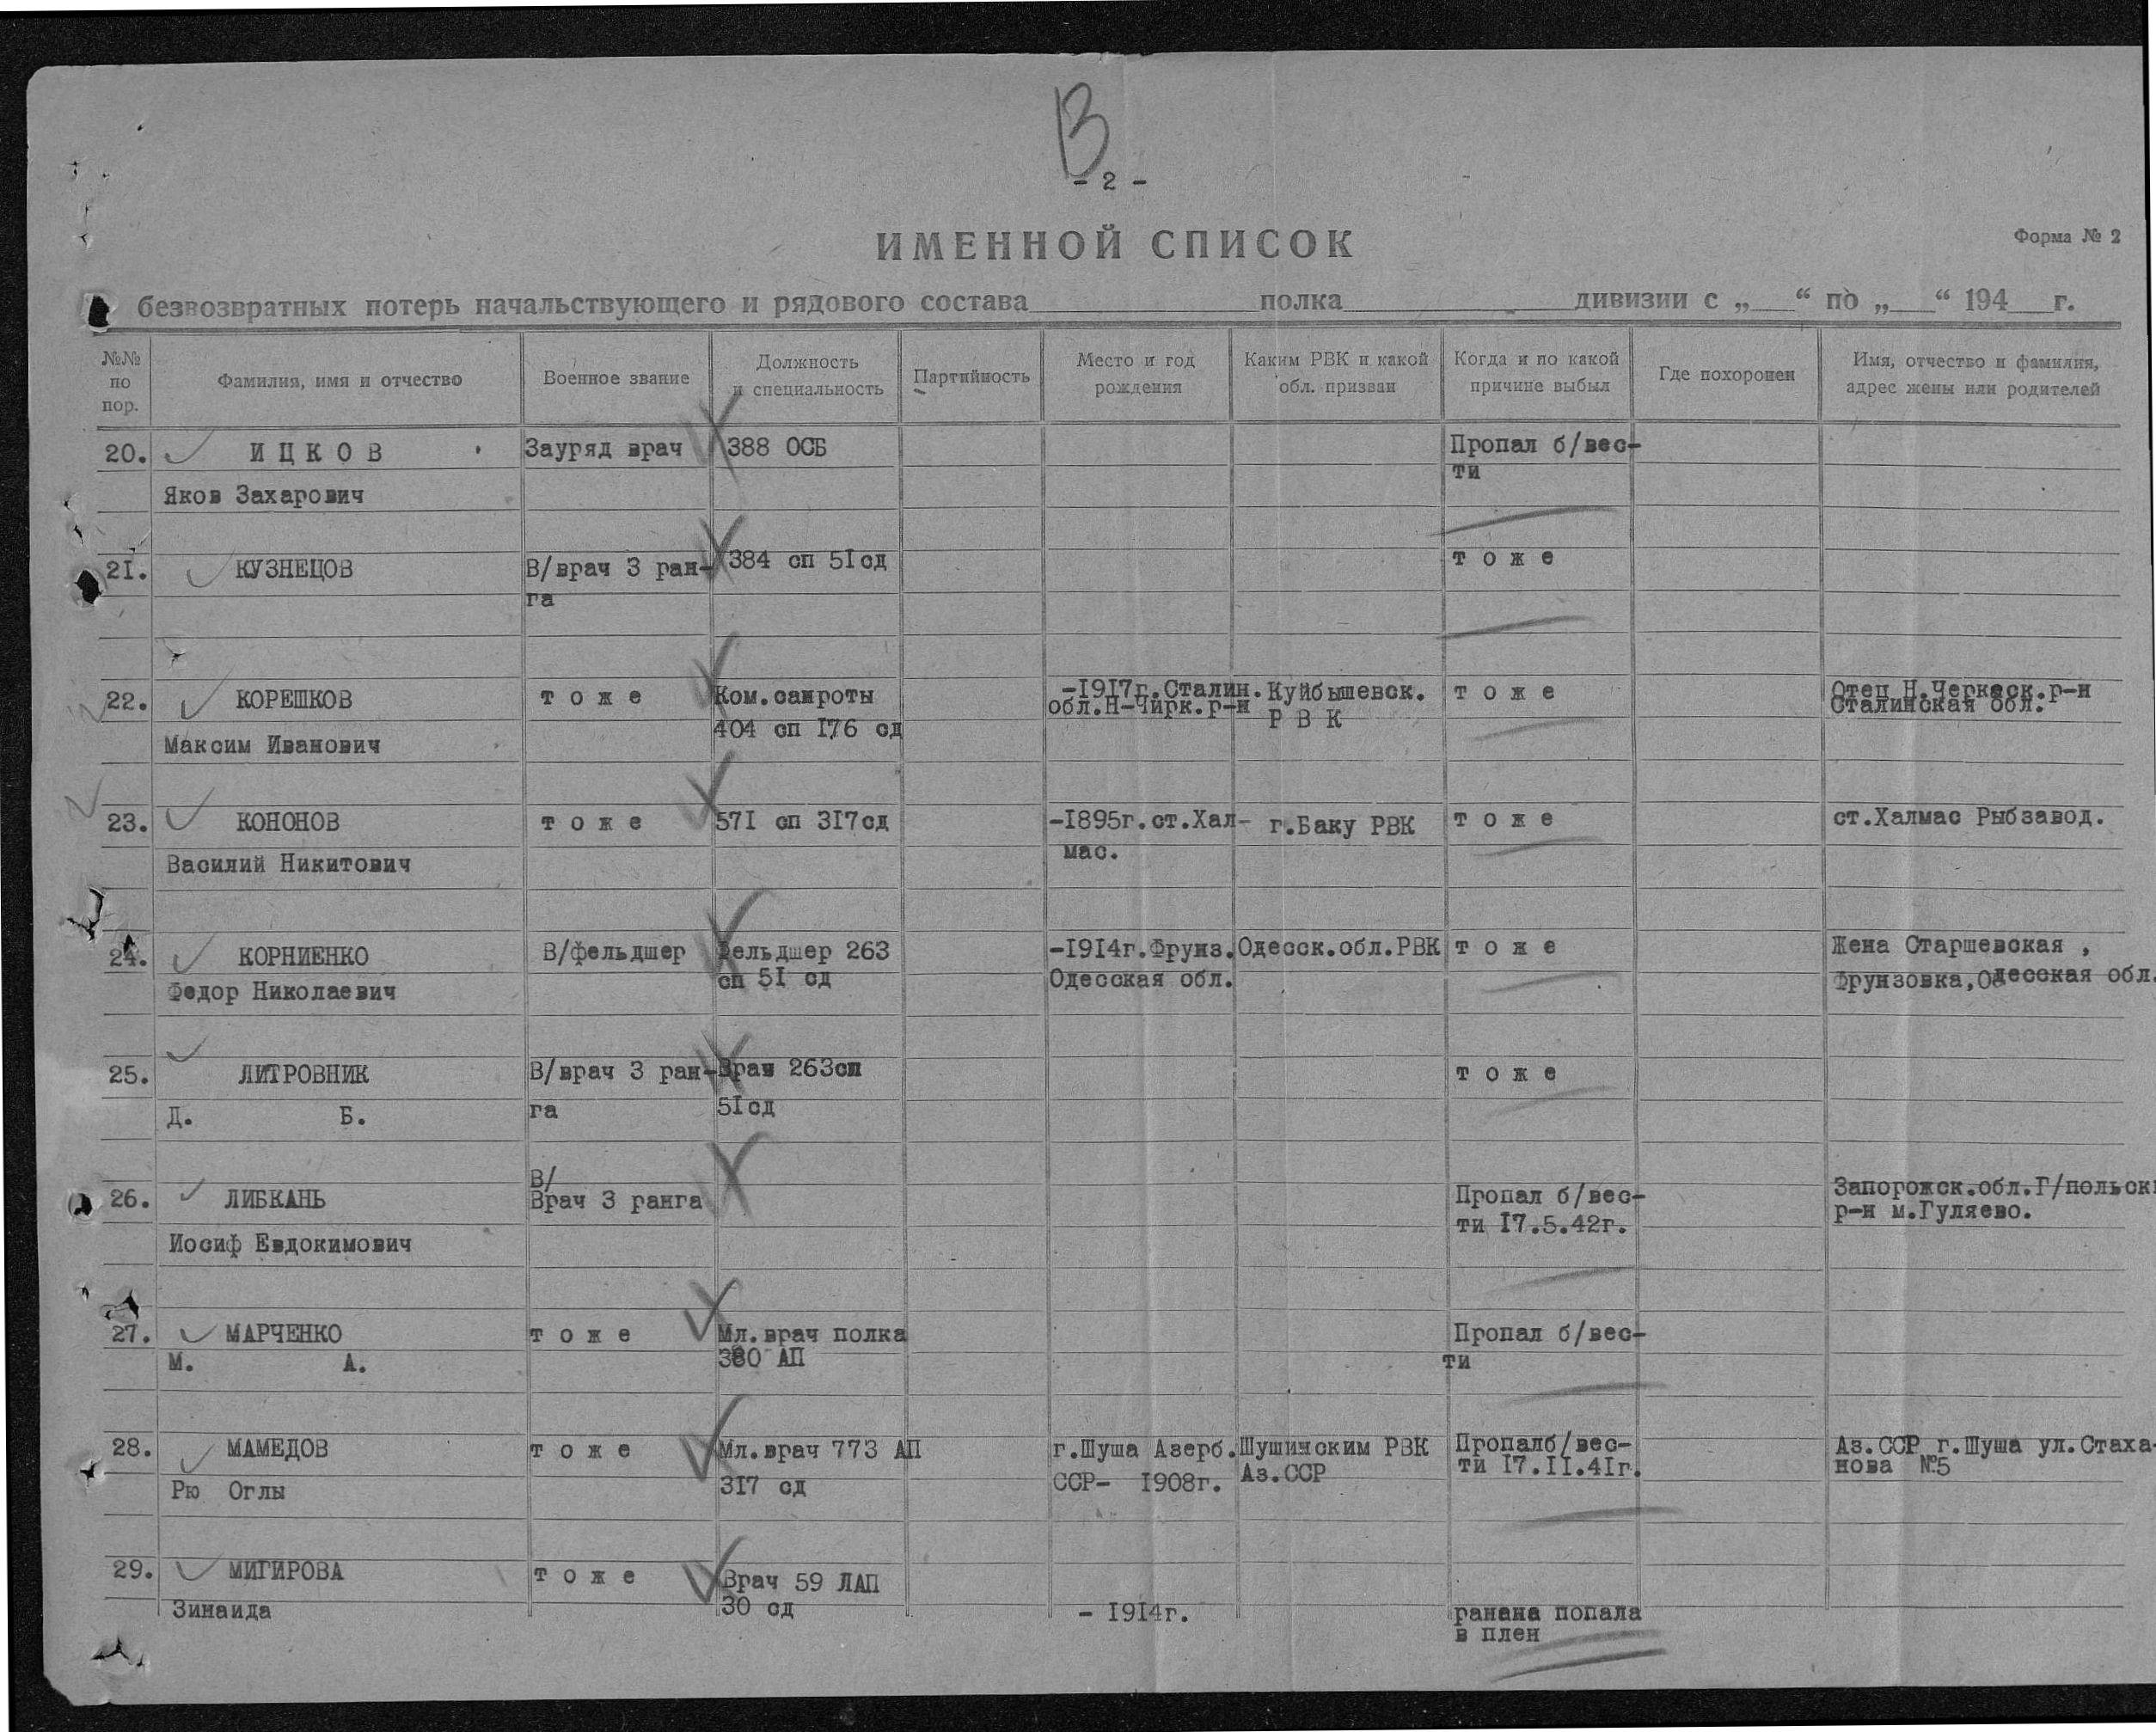 В
- 2 -
ИМЕННОЙ СПИСОК
Форма № 2
безвозвратных потерь начальствующего и рядового состава полка дивизии с „ “ по „ “ 194 г.
№№ по пор. Фамилия, имя и отчество Военное звание Должность и специальность Партийность Место и год рождения Каким РВК и какой обл. призван Когда и по какой причине выбыл Где похоронен Имя, отчество и фамилия, адрес жены или родителей
20. ИЦКОВ Зауряд врач 388 ОСБ Пропал б/вес-
ти
Яков Захарович
21. КУЗНЕЦОВ В/врач 3 ран- 384 сп 51сд тоже
га
22. КОРЕШКОВ тоже Ком.санроты -1917г.Сталин. Куйбышевск. тоже Отец Н.Черкаск.р-н
обл.Н-Чирк.р-н РВК Сталинская обл.
404 сп 176 сд
Максим Иванович
23. КОНОНОВ тоже 571 сп 317сд -1895г.ст.Хал- г.Баку РВК тоже ст.Халмас Рыбзавод.
мас.
Василий Никитович
24. КОРНИЕНКО В/фельдшер Фельдшер 263 -1914г.Фрунз. Одесск.обл.РВК тоже Жена Старшевская ,
сп 51 сд Одесская обл. Фрунзовка,Одесская обл.
Федор Николаевич
25. ЛИТРОВНИК В/врач 3 ран- Врач 263сп тоже
Д. Б. га 51сд
В/
26. ЛИБКАНЬ Врач 3 ранга Пропал б/вес- Запорожск.обл.Г/польск
ти 17.5.42г. р-н м.Гуляево.
Иосиф Евдокимович
27. МАРЧЕНКО тоже Мл.врач полка Пропал б/вес-
М. А. 380 АП ти
28. МАМЕДОВ тоже Мл.врач 773 АП г.Шуша Азерб. Шушинским РВК Пропалб/вес- Аз.ССР г.Шуша ул.Стаха-
Рю Оглы 317 сд ССР- 1908г. Аз.ССР ти 17.11.41г. нова №5
29. МИГИРОВА тоже Врач 59 ЛАП
Зинаида 30 сд - 1914г. ранена попала
в плен